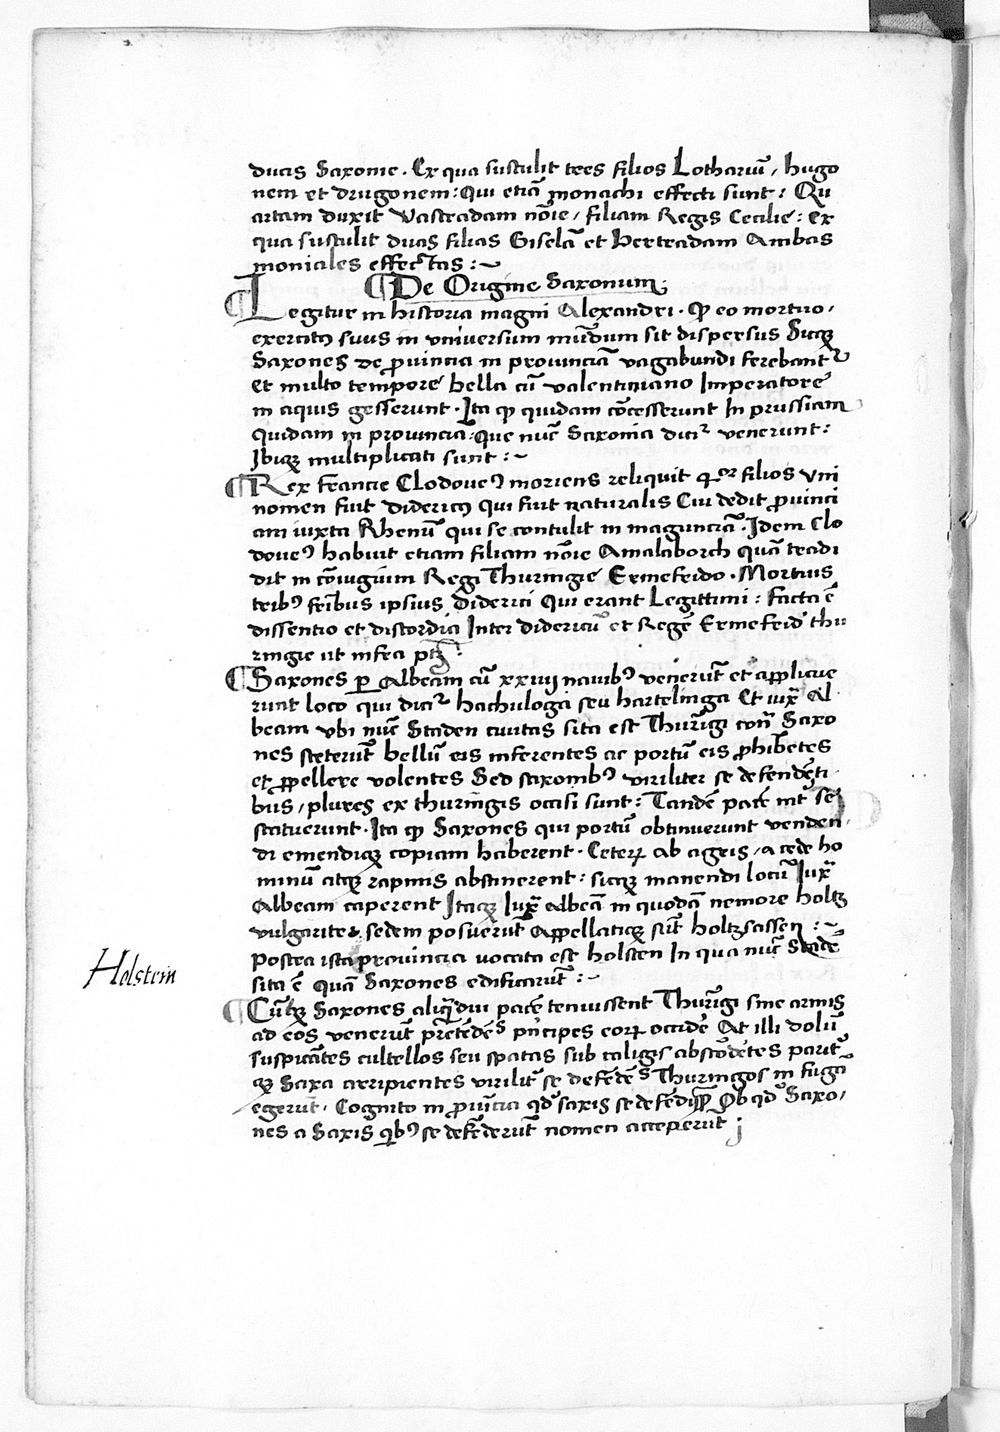 ducis Saxonie . Ex qua sustulit tres filios Lothariū / hugo
nem et drugonem : Qui etiā monachi effecti sunt : Qu
artam duxit Vastradam nōie / filiam Regis Cecilie : ex
qua sustulit duas filias Giselā et hertradam Ambas
moniales effectas :~
¶ De Origine Saxonum .
¶ Legitur in historia magni Alexandri . ꝙ eo mortuo .
exercitꝰ suus in vniuersum mūdum sit dispersus Sicqꝫ
Saxones de ꝓuincia in prouinciā vagabundi ferebantᷣ
et multo tempore bella cū valentiniano Imperatore
in aquis gesserunt . Ita ꝙ quidam cōcesserunt In prussiam
quidam in prouinciā : Que nūc Saxonia diciᷣ venerunt :
Ibiqꝫ multiplicati sunt :~
¶ Rex francie Clodoueꝰ moriens reliquit qͦr filios vni
nomen fuit didericꝰ Qui fuit naturalis Cui dedit ꝓuinci
am iuxta Rhenū qui se contulit in magunciā . Idem Clo
doueꝰ habuit etiam filiam nōie Amalaborch quā tradi
dit in cōiugium Regi Thuringie Ermefrido . Mortuis
tribꝰ fr̄ibus ipsius diderici Qui erant Legittimi : facta ē
dissentio et discordia Inter didericū et Regē Ermefridū thu
ringie ut infra ptꝫ .
¶ Saxones ꝑ Albeam cū xxiiij nauibꝰ venerūt et applicue
runt loco qui diciᷣ hachuloga seu hartelinga Et iuxᷓ Al
beam vbi nūc Staden ciuitas sita est Thurīgi contᷓ Saxo
nes steterūt bellū eis inferentes ac portū eis ꝓhibētes
et ꝓpellere volentes Sed saxonibꝰ viriliter se defendēti
bus / plures ex thuringis occisi sunt : Tandē pacē int̄ se
statuerunt . Ita ꝙ Saxones qui portū obtinuerunt venden
di emendiqꝫ copiam haberent . Ceterꝝ ab agris / a cede ho
minū atqꝫ rapinis abstinerent : sicqꝫ manendi locū Iuxᷓ
Albeam caperent Itaqꝫ Iuxᷓ albeā in quodā nemore holtz
vulgariter sedem posuerūt Appellatiqꝫ sūt holtzsassen :~
Postea ista prouincia vocata est holsten In qua nūc Stadē
sita ē quā Saxones edificarūt :~
¶ Cūqꝫ Saxones aliqͣdiu pacē tenuissent Thurīgi sine armis
ad eos venerūt p̄tēdēs pͥncipes eorꝝ occidē At illi dolū
suspicātes cultellos seu spatas sub caligis abscōdētes parit̄
qꝫ Saxa arripientes virilit̄ se defēdēs Thuringos in fuga
egerūt . Cognito in ꝓuīcia qđ saxis se defēdisset Ob qđ Saxo
nes a Saxis qͥbꝰ se defēderūt nomen acceperūt
Holstein